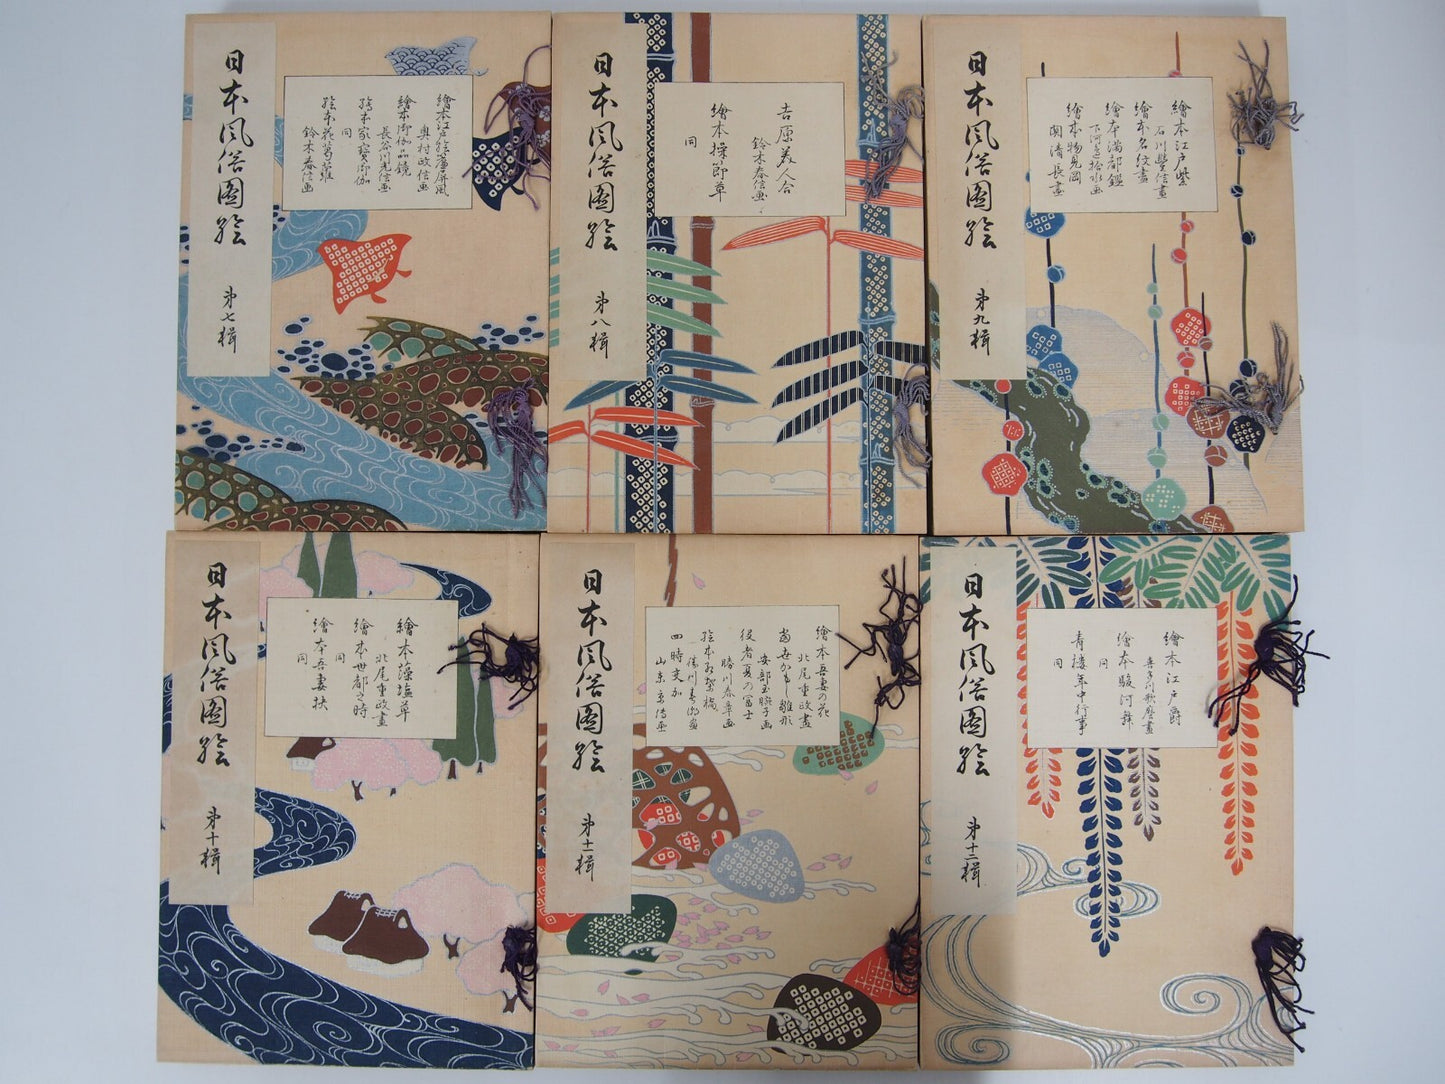 日本風俗圖絵
第七輯
繪本江戸絵簾屏風
奥村政信画
繪本御伽品鏡
長谷川光信画
繪本家寳御伽
同
絵本花葛蘿
鈴木春信画
日本風俗圖絵
第八輯
吉原美人合
鈴木春信画
繪本操節草
同
日本風俗圖絵
第九輯
繪本江戸紫
石川豊信畫
繪本名紋盡
繪本満都鑑
下河邊拾水画
繪本物見岡
関清長畫
日本風俗圖絵
第十輯
繪本藻塩草
北尾重政畫
繪本世都之時
同
繪本吾妻扶
同
日本風俗圖絵
第十一輯
繪本吾妻の花
北尾重政畫
當世かもし雛形
安部玉腕子画
役者夏の冨士
勝川春章画
絵本
勝川春潮画
四時交加
山東京傳画
日本風俗圖絵
第十二輯
繪本江戸爵
喜多川歌麿畫
繪本駿河舞
同
青樓年中行事
同